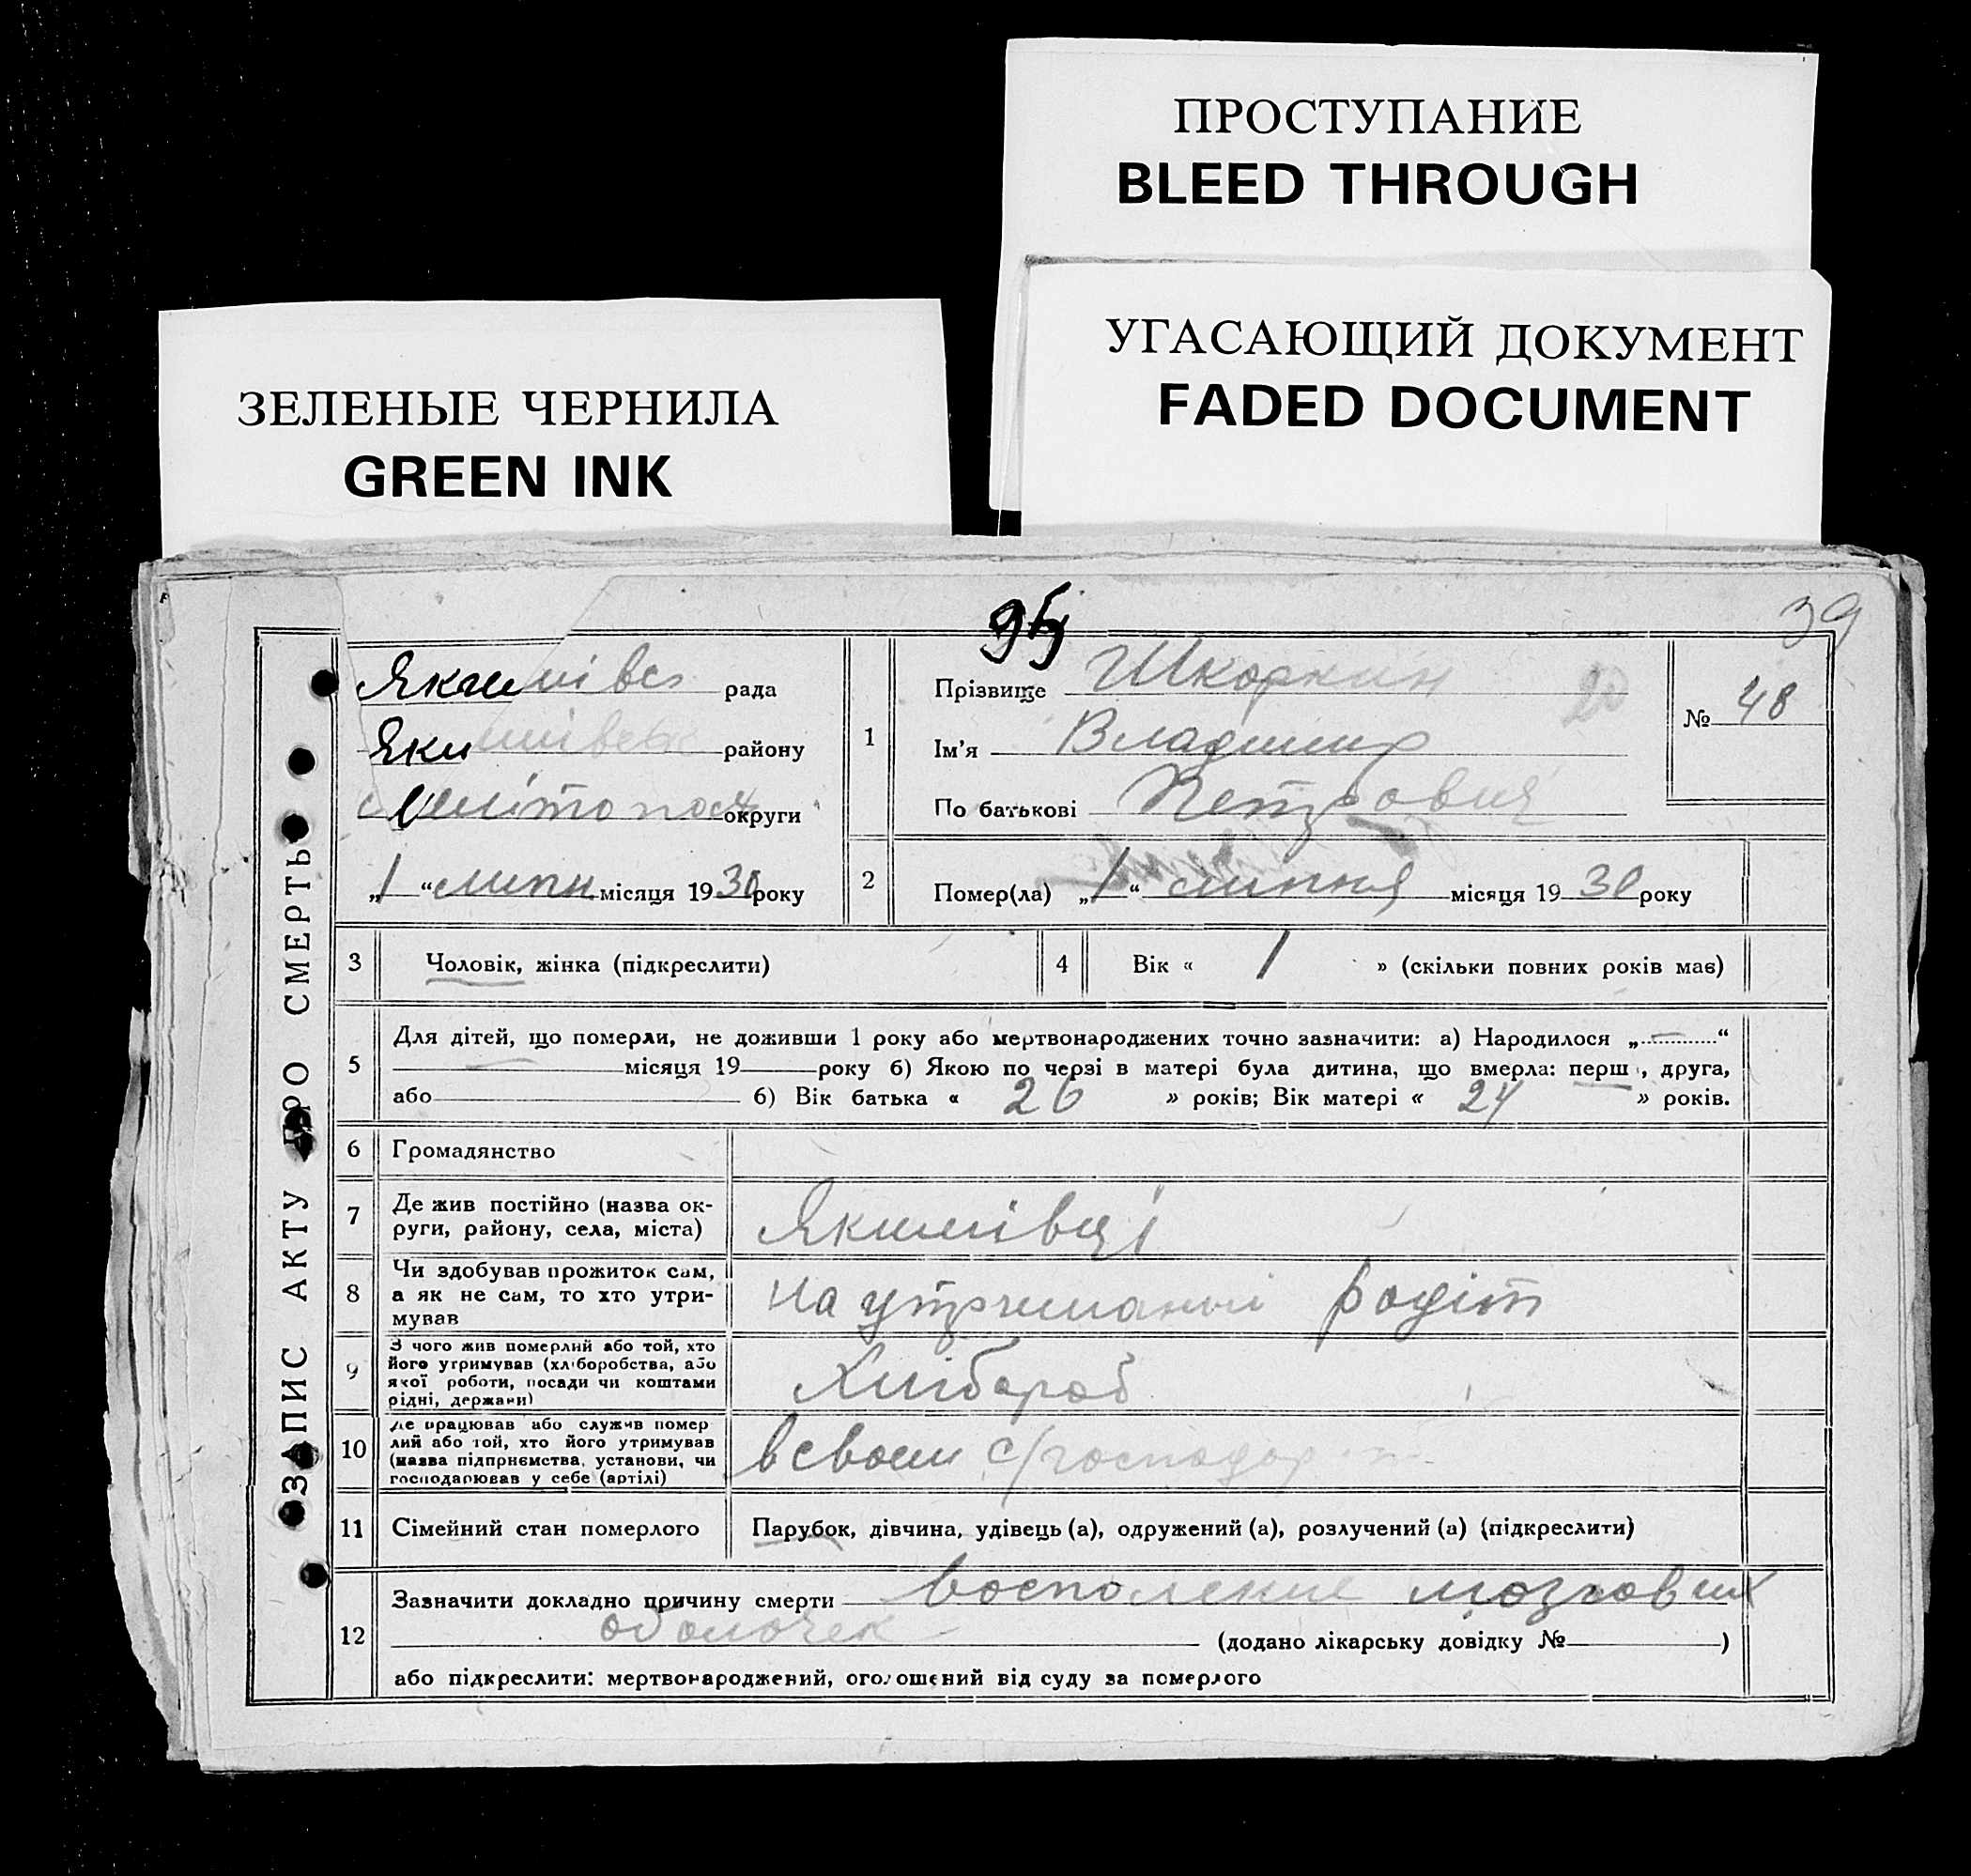 ПРОСТУПАНИЕ
BLEED THROUGH
УГАСАЮЩИЙ ДОКУМЕНТ
FADED DOCUMENT
ЗЕЛЕНЫЕ ЧЕРНИЛА
GREEN INK
39
ЗАПИС АКТУ ПРО СМЕРТЬ
Якимівс рада
Якимівськ району
Мелітопол округи
„1“ липн місяця 1930 року
1
Прізвище Шкоркин 20
Ім'я Владимир
По батькові Петрович
№ 48
2 Помер(ла) „1“ липня місяця 1930 року
3 Чоловік, жінка (підкреслити)
4 Вік « 1 » (скільки повних років має)
5
Для дітей, що померли, не доживши 1 року або мертвонароджених точно зазначити: а) Народилося „—“
— місяця 19 року б) Якою по черзі в матері була дитина, що вмерла: перш, друга,
або б) Вік батька « 26 » років; Вік матері « 24 » років.
6 Громадянство
7 Де жив постійно (назва ок-
руги, району, села, міста) Якимівці
8 Чи здобував прожиток сам,
а як не сам, то хто утри-
мував
на утриманыи родіт
9 З чого жив померлий або той, хто
його утримував (хліборобства, або
якої роботи, посади чи коштами
рідні, держави)
Хлібороб
10 Де працював або служив помер
лий або той, хто його утримував
(назва підприємства, установи, чи
господарював у себе (артілі)
в своем с/господар
11 Сімейний стан померлого Парубок, дівчина, удівець (а), одружений (а), розлучений (а) (підкреслити)
12
Зазначити докладно причину смерти восполение мозговых
оболочек (додано лікарську довідку № )
або підкреслити: мертвонароджений, оголошений від суду за померлого